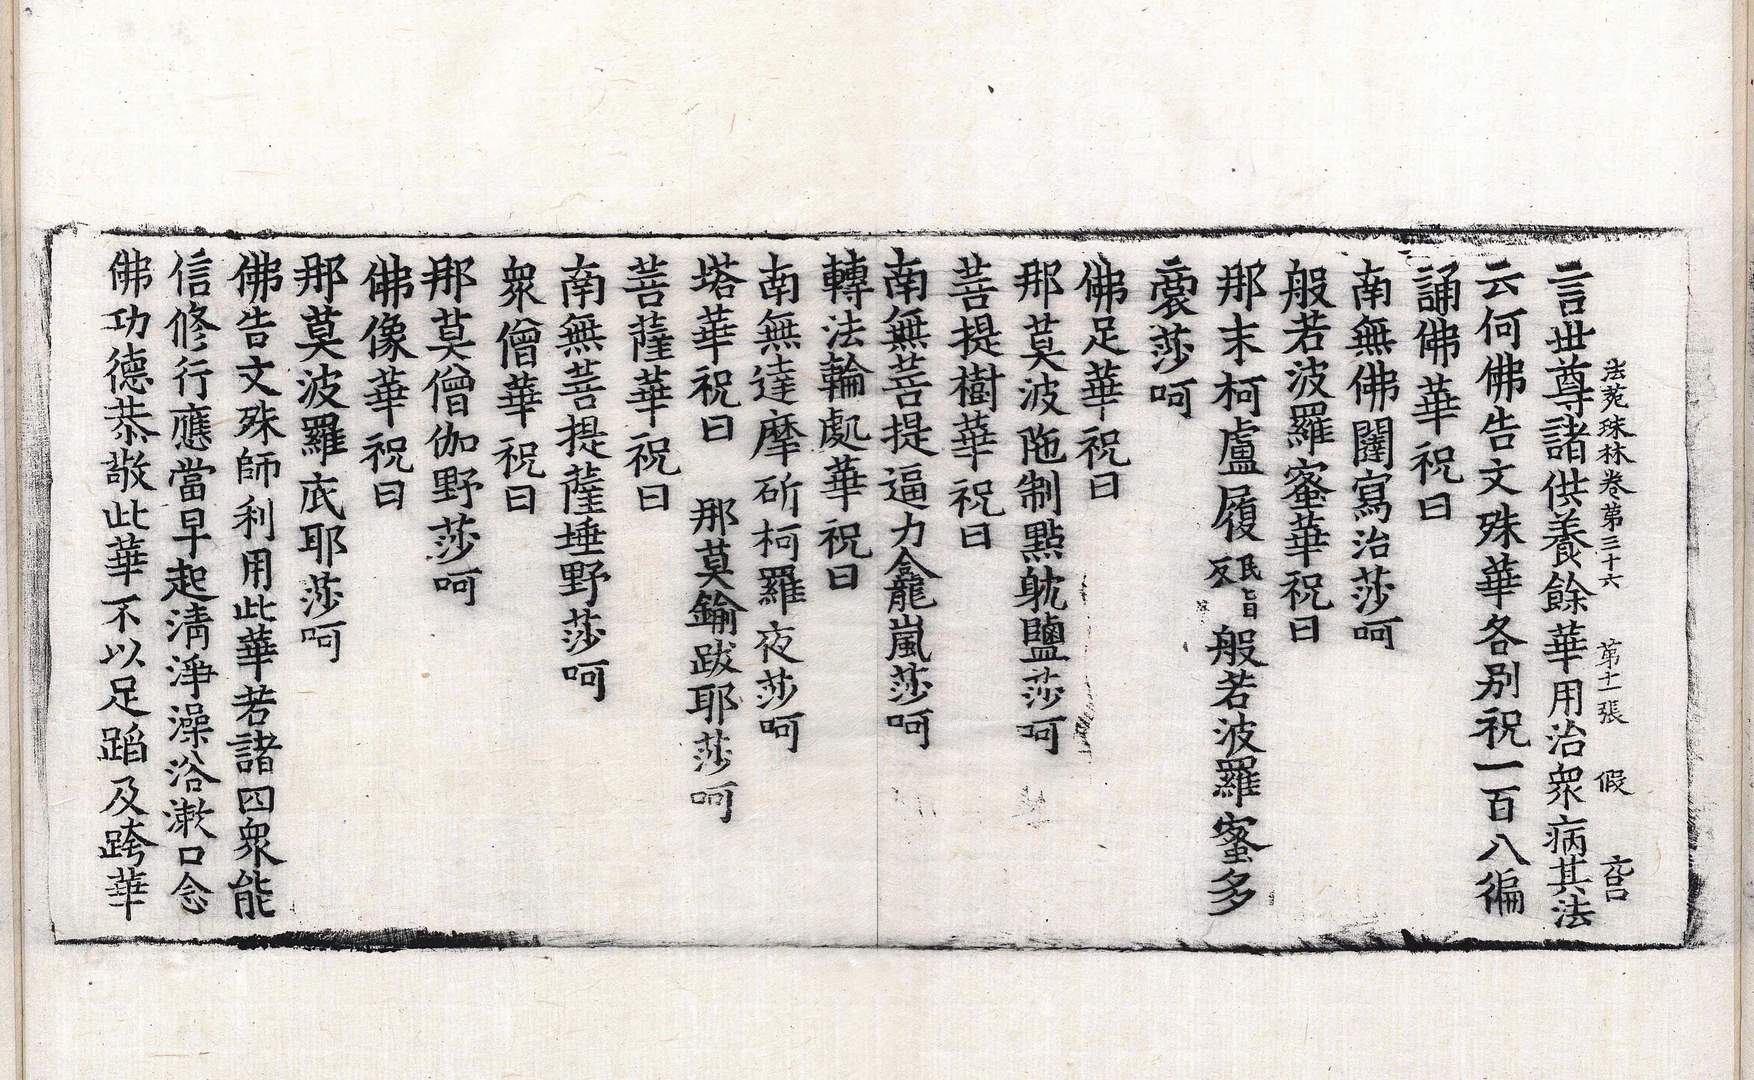 法苑珠林卷第三十六　第十一張　假
言世尊諸供養餘華用治衆病其法
云何佛告文殊華各別祝一百八徧
誦佛華祝曰
南無佛闥寫治莎呵
般若波羅蜜華祝曰
那末柯盧履民旨反般若波羅蜜多
裔莎呵
佛足華祝曰
那莫波陁制點躭鹽莎呵
菩提樹華祝曰
南無菩提逼力龕嵐莎呵
轉法輪處華祝曰
南無達摩斫柯羅夜莎呵
塔華祝曰　那莫鍮跋耶莎呵
菩薩華祝曰
南無菩提薩埵野莎呵
衆僧華祝曰
那莫僧伽野莎呵
佛像華祝曰
那莫波羅底耶莎呵
佛告文殊師利用此華若諸四衆能
信修行應當早起清淨澡浴漱口念
佛功德恭敬此華不以足蹈及跨華